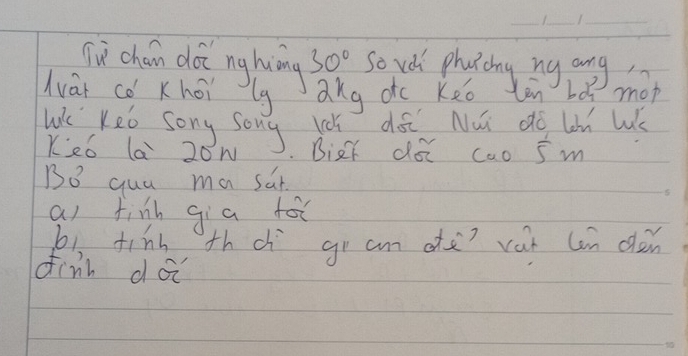 Từ chân dốc nghiêng 30° so với phương ngang,
1 vật có khối lg 2kg đc kéo lên bởi một
lực kéo song song với dốc Núi độ lớn lực
kéo là 20N. Biết dốc cao 5m
Bỏ qua ma sát.
a, tính gia tốc
b, tính thời gian để vật lên đến
đỉnh dốc